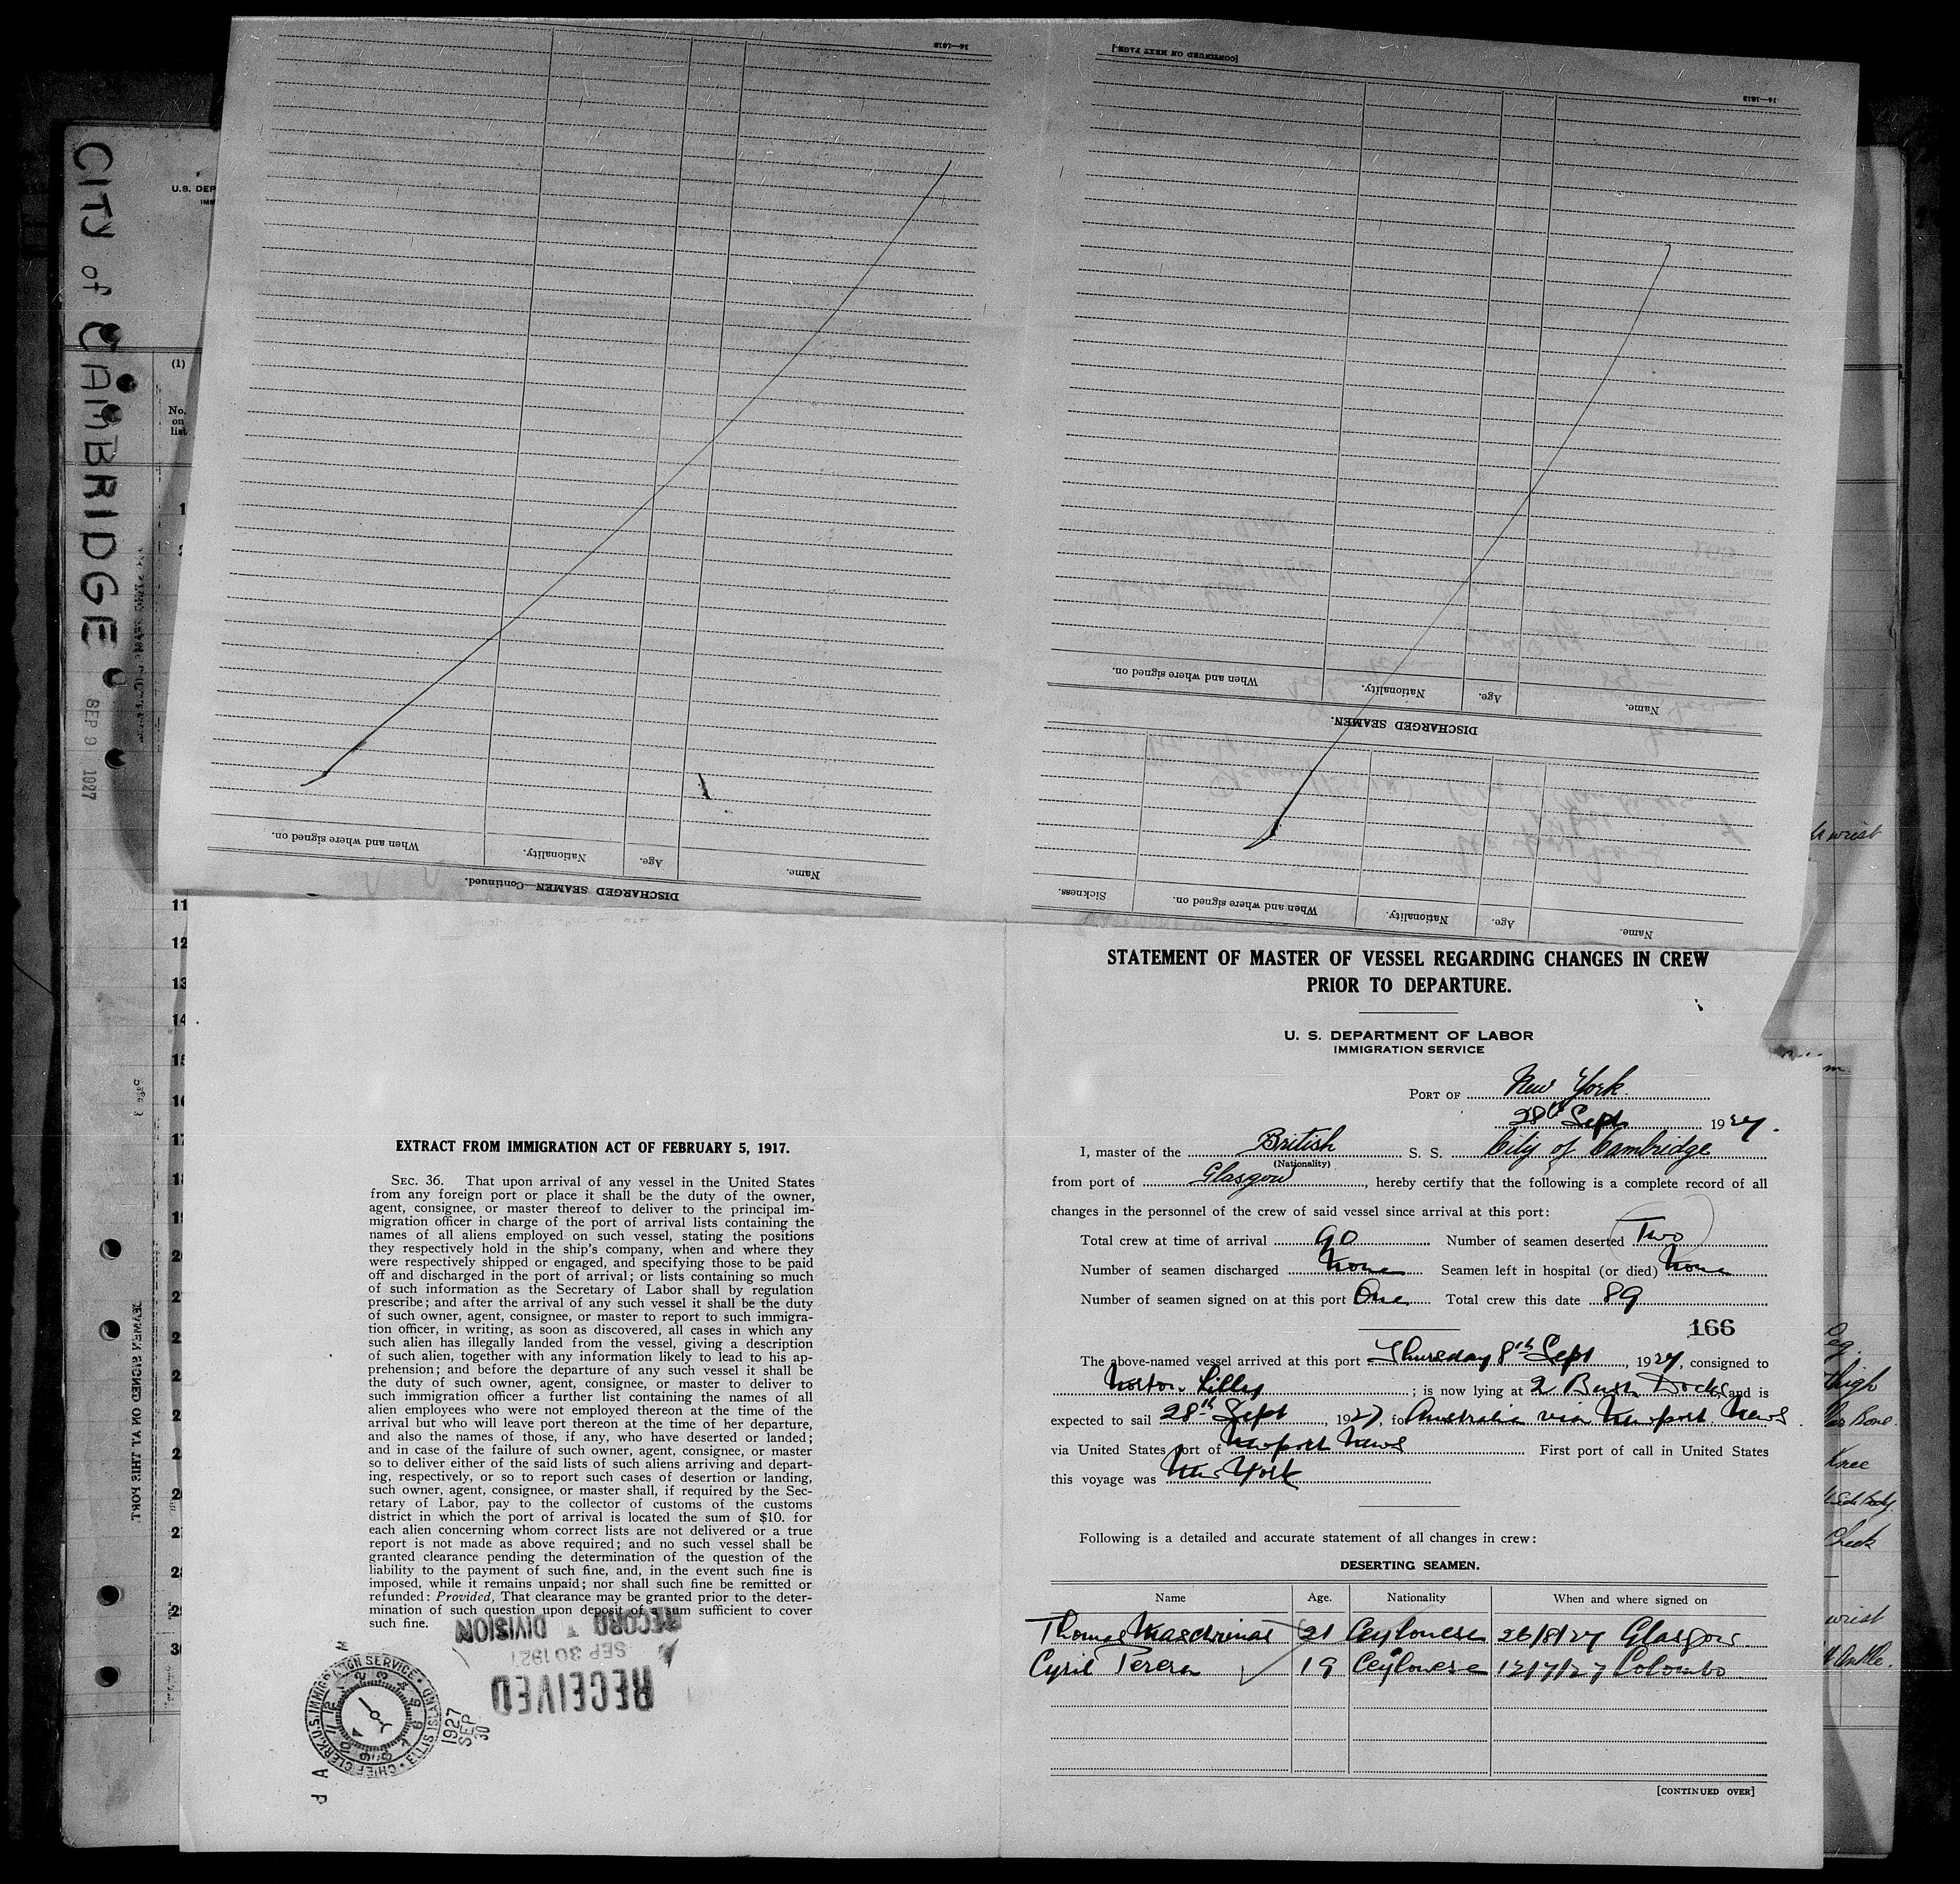 16—1613
[CONTINUED ON NEXT PAGE.]
16—1613
When and where signed on.
Nationality.
Age.
Name.
DISCHARGED SEAMEN.
When and where signed on.
Nationality.
Age.
Name.
DISCHARGED SEAMEN—Continued.
Sickness.
When and where signed on.
Nationality.
Age.
Name.
CITY of CAMBRIDGE
SEP 9 1927
U.S. DEP
IMM
(1)
No.
on
list
1
11
12
13
14
15
16
17
18
19
20
2
2
2
2
2
2
27
28
29
3
EXTRACT FROM IMMIGRATION ACT OF FEBRUARY 5, 1917.
SEC. 36. That upon arrival of any vessel in the United States
from any foreign port or place it shall be the duty of the owner,
agent, consignee, or master thereof to deliver to the principal im-
migration officer in charge of the port of arrival lists containing the
names of all aliens employed on such vessel, stating the positions
they respectively hold in the ship's company, when and where they
were respectively shipped or engaged, and specifying those to be paid
off and discharged in the port of arrival; or lists containing so much
of such information as the Secretary of Labor shall by regulation
prescribe; and after the arrival of any such vessel it shall be the duty
of such owner, agent, consignee, or master to report to such immigra-
tion officer, in writing, as soon as discovered, all cases in which any
such alien has illegally landed from the vessel, giving a description
of such alien, together with any information likely to lead to his ap-
prehension; and before the departure of any such vessel it shall be
the duty of such owner, agent, consignee, or master to deliver to
such immigration officer a further list containing the names of all
alien employees who were not employed thereon at the time of the
arrival but who will leave port thereon at the time of her departure,
and also the names of those, if any, who have deserted or landed;
and in case of the failure of such owner, agent, consignee, or master
so to deliver either of the said lists of such aliens arriving and depart-
ing, respectively, or so to report such cases of desertion or landing,
such owner, agent, consignee, or master shall, if required by the Sec-
retary of Labor, pay to the collector of customs of the customs
district in which the port of arrival is located the sum of $10. for
each alien concerning whom correct lists are not delivered or a true
report is not made as above required; and no such vessel shall be
granted clearance pending the determination of the question of the
liability to the payment of such fine, and, in the event such fine is
imposed, while it remains unpaid; nor shall such fine be remitted or
refunded: Provided, That clearance may be granted prior to the deter-
mination of such question upon deposit of a sum sufficient to cover
such fine.
RECEIVED
SEP 30 1927
RECORD DIVISION
CHIEF CLERK, U.S. IMMIGRATION SERVICE • ELLIS ISLAND •
1927
SEP
30
STATEMENT OF MASTER OF VESSEL REGARDING CHANGES IN CREW
PRIOR TO DEPARTURE.
U. S. DEPARTMENT OF LABOR
IMMIGRATION SERVICE
PORT OF New York.
28th Sept 1927.
I, master of the British S. S. City of Cambridge
(Nationality)
from port of Glasgow, hereby certify that the following is a complete record of all
changes in the personnel of the crew of said vessel since arrival at this port:
Total crew at time of arrival 90 Number of seamen deserted Two
Number of seamen discharged None Seamen left in hospital (or died) None
Number of seamen signed on at this port One Total crew this date 89
166
The above-named vessel arrived at this port Thursday 8th Sept, 1927, consigned to
Norton Lilly; is now lying at 2 Bush Docks, and is
expected to sail 28th Sept, 1927, for Australia via Newport News
via United States port of Newport News First port of call in United States
this voyage was New York
Following is a detailed and accurate statement of all changes in crew:
DESERTING SEAMEN.
Name Age. Nationality When and where signed on
Thomas 21 Ceylonese 26/8/27 Glasgow
Cyril Perera 19 Ceylonese 12/7/27 Colombo
[CONTINUED OVER]
wrist
thigh
Knee
Cheek
wrist